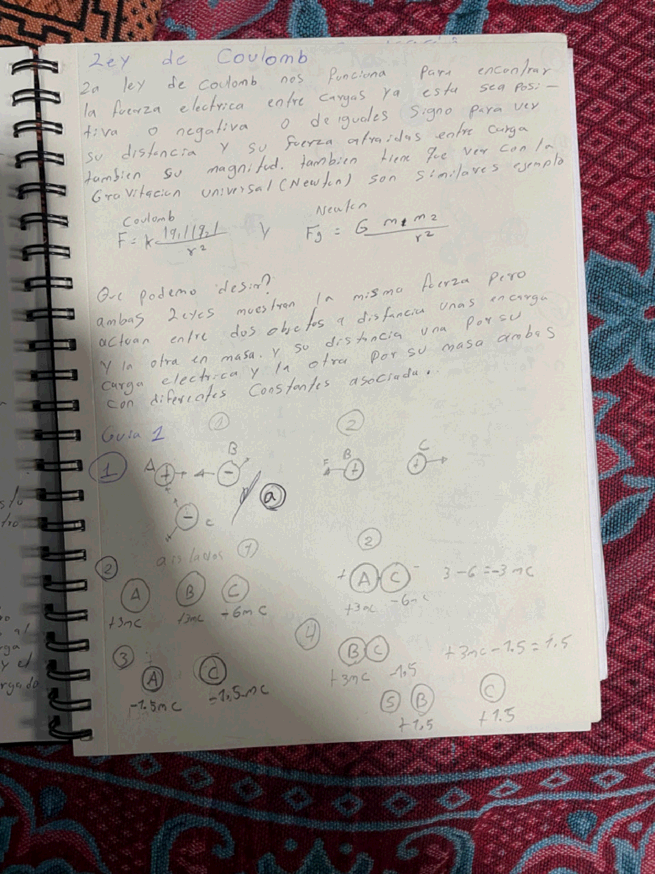 Ley de Coulomb
La ley de Coulomb nos funciona para encontrar
la fuerza electrica entre cargas ya esta sea posi-
tiva o negativa o de iguales signo para ver
su distancia y su fuerza atraidas entre carga
tambien su magnitud. tambien tiene que ver con la
Gravitacion universal (Newton) son similares ejemplo
Coulomb
Newton
F = k |q1||q2| / r2 y Fg = G m1 m2 / r2
Que podemo desir?
ambas Leyes muestran la misma fuerza pero
actuan entre dos objetos a distancia unas en carga
y la otra en masa. y su distancia una por su
carga electrica y la otra por su masa ambas
con diferentes constantes asociada.
Guia 1
1
2
1 A + B - B + C +
- C
a
2 aislados 1
2
A B C
+3nC +3nC -6nC
+ A C - 3-6=-3nC
+3nC -6nC
3
A C
-1.5nC -1.5nC
4
B C +3nC-1.5=1.5
+3nC -1.5
5 B C
+1.5 +1.5